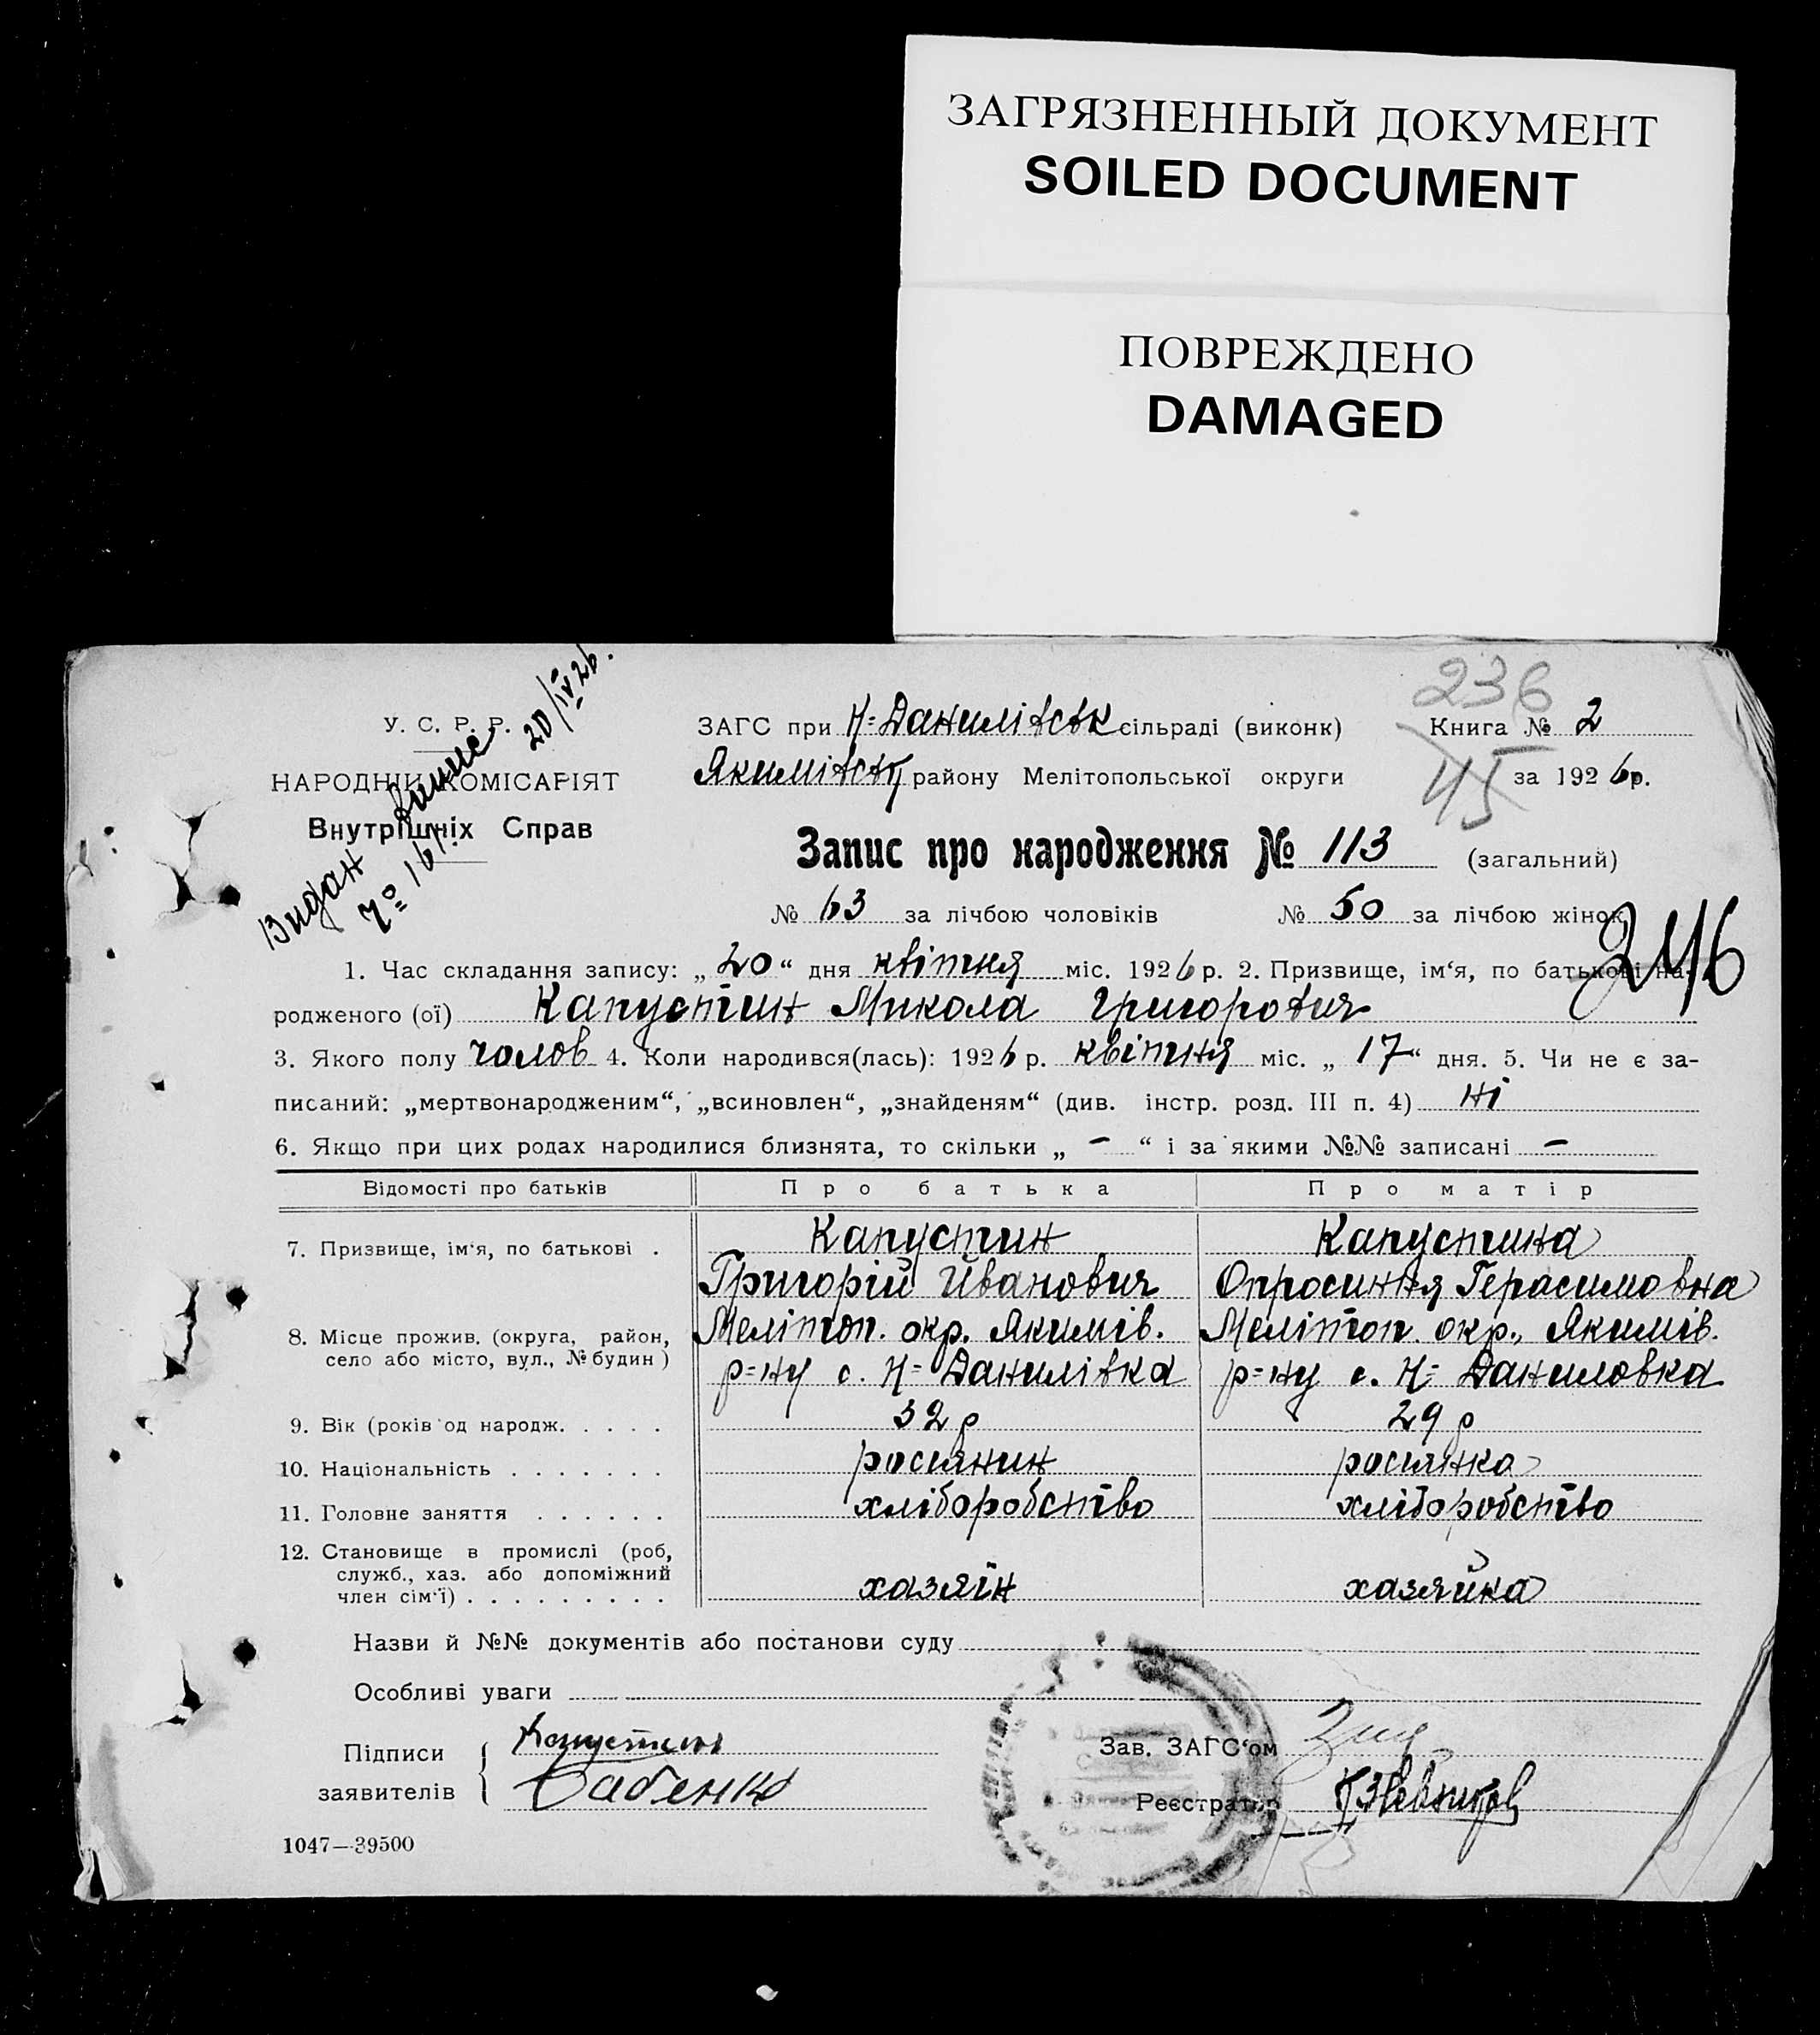 ЗАГРЯЗНЕННЫЙ ДОКУМЕНТ
SOILED DOCUMENT
ПОВРЕЖДЕНО
DAMAGED
236
45
У. С. Р. Р.
НАРОДНІЙ КОМІСАРІЯТ
Внутрішніх Справ
Видан 20/IV 26.
ЗАГС при Н=Данилівськ сільраді (виконк)
Книга № 2
Якимівськ району Мелітопольської округи
за 1926р.
Запис про народження № 113 (загальний)
№ 63 за лічбою чоловіків № 50 за лічбою жінок
246
1. Час складання запису: „20“ дня квітня міс. 1926 р. 2. Призвище, ім‘я, по батькові на-
родженого (ої) Капустин Микола Григорович
3. Якого полу чолов 4. Коли народився(лась): 1926 р. квітня міс. „17“ дня. 5. Чи не є за-
писаний: „мертвонародженим“, „всиновлен“, „знайденям“ (див. інстр. розд. III п. 4) Ні
6. Якщо при цих родах народилися близнята, то скільки „ – “ і за якими №№ записані –
Відомості про батьків Про батька Про матір
7. Призвище, ім‘я, по батькові . Капустин Капустина
Григорій Иванович Опросиння Герасимовна
8. Місце прожив. (округа, район, Меліттоп. окр. Якимів. Меліттоп. окр., Якимів.
село або місто, вул., № будин ) р=ну с. Н=Данилівка р=ну с. Н=Даниловка
9. Вік (років од народж. . . . . 32 р 29 р
10. Національність . . . . . . . росіянин росіянка
11. Головне заняття . . . . . . хліборобство хліборобство
12. Становище в промислі (роб,
служб., хаз. або допоміжний
член сім‘ї) . . . . . . . . . хазяїн хазяйка
Назви й №№ документів або постанови суду
Особливі уваги
Підписи Капустин
заявителів Бабенко
Зав. ЗАГС‘ом
Реєстратор
1047—39500